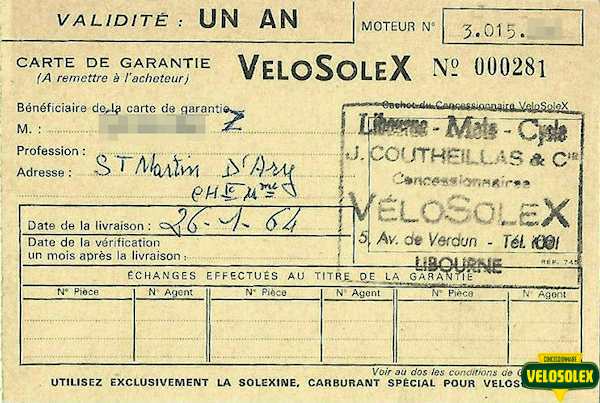 VALIDITÉ : UN AN
MOTEUR N° 3.015.
CARTE DE GARANTIE VELOSOLEX N° 000281
(A remettre à l'acheteur)
Bénéficiaire de la carte de garantie
Cachet du Concessionnaire VeloSoleX
M. :
Profession :
Adresse : ST Martin D'Ary
CHte Mme
Date de la livraison : 26-1-64
Date de la vérification
un mois après la livraison :
Libourne - Moto - Cycle
J. COUTHEILLAS & Cie
Concessionnaires
VÉLOSOLEX
5, Av. de Verdun - Tél.
LIBOURNE
RÉF. 745
ÉCHANGES EFFECTUÉS AU TITRE DE LA GARANTIE
N° Pièce N° Agent N° Pièce N° Agent N° Pièce N° Agent
Voir au dos les conditions de G
UTILISEZ EXCLUSIVEMENT LA SOLEXINE, CARBURANT SPÉCIAL POUR VELOS
CONCESSIONNAIRE
VELOSOLEX